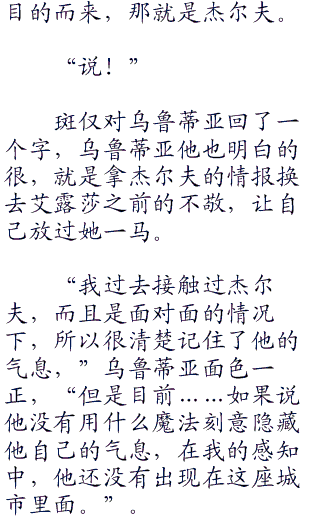 目的而来，那就是杰尔夫。
“说！”
斑仅对乌鲁蒂亚回了一
个字，乌鲁蒂亚他也明白的
很，就是拿杰尔夫的情报换
去艾露莎之前的不敬，让自
己放过她一马。
“我过去接触过杰尔
夫，而且是面对面的情况
下，所以很清楚记住了他的
气息，”乌鲁蒂亚面色一
正，“但是目前……如果说
他没有用什么魔法刻意隐藏
他自己的气息，在我的感知
中，他还没有出现在这座城
市里面。”。